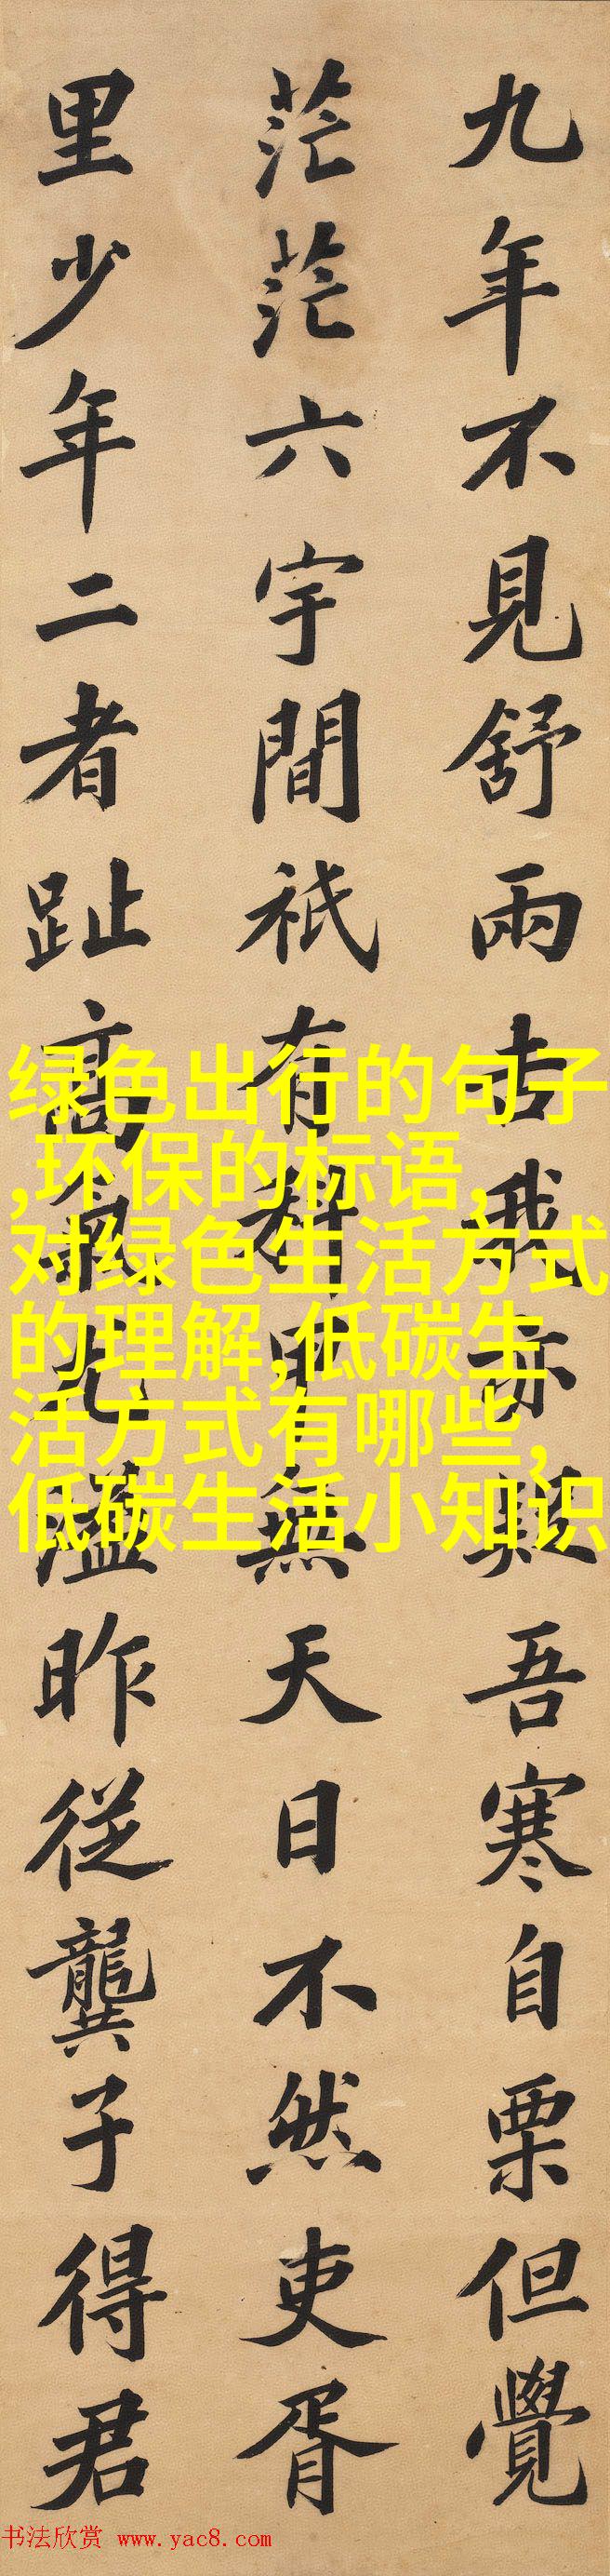 九年不見舒雨吉我亦疑吾寒自栗但覺
茫茫六宇間祇有科甲無天日不然吏胥
里少年二者趾高氣尤隘昨從龔子得君
绿色出行的句子
,环保的标语,
对绿色生活方式
的理解,低碳生
活方式有哪些,
低碳生活小知识
书法欣赏 www.yac8.com